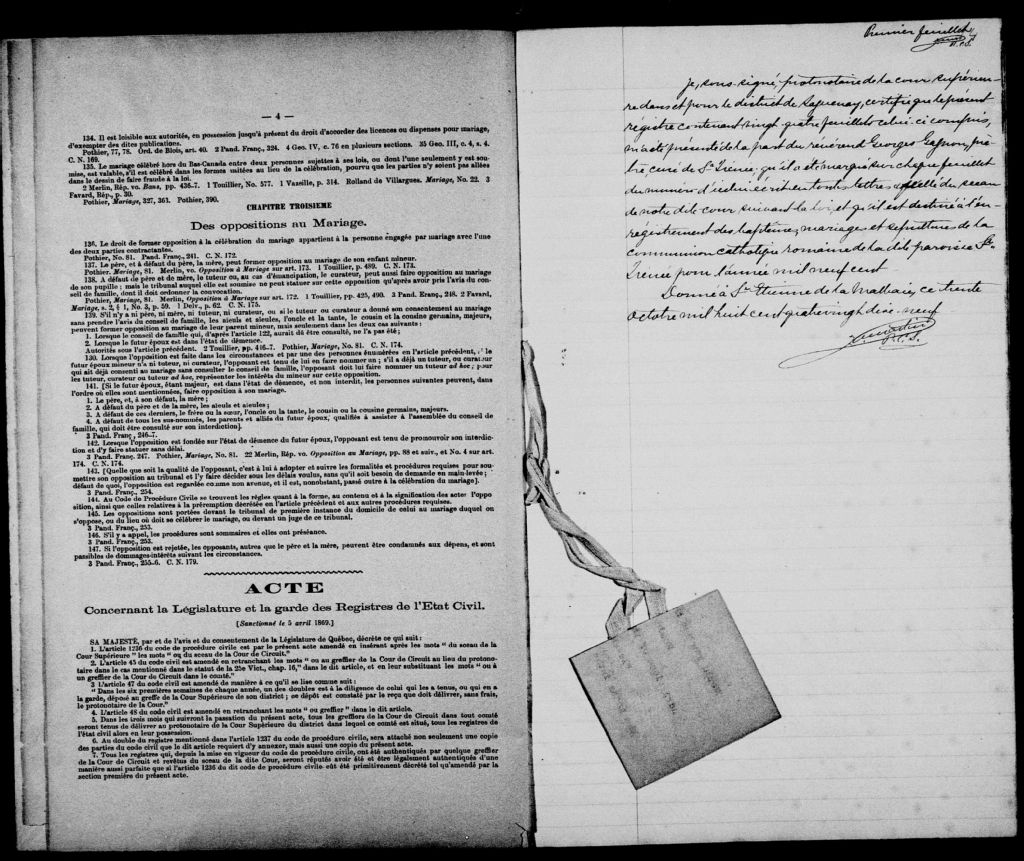 — 4 —
134. Il est loisible aux autorités, en possession jusqu'à présent du droit d'accorder des licences ou dispenses pour mariage,
d'exempter des dites publications.
Pothier, 77, 78. Ord. de Blois, art. 40. 2 Pand. Franç., 324. 4 Geo. IV, c. 76 en plusieurs sections. 25 Geo. III, c. 4, s. 4.
C. N. 169.
135. Le mariage célébré hors du Bas-Canada entre deux personnes sujettes à ses lois, ou dont l'une seulement y est sou-
mise, est valable, s'il est célébré dans les formes usitées au lieu de la célébration, pourvu que les parties n'y soient pas allées
dans le dessin de faire fraude à la loi.
2 Merlin, Rép. vo. Bans, pp. 436-7. 1 Touillier, No. 577. 1 Vazeille, p. 314. Rolland de Villargues. Mariage, No. 22. 3
Favard, Rép., p. 30.
Pothier, Mariage, 327, 363. Pothier, 390.
CHAPITRE TROISIEME
Des oppositions au Mariage.
136. Le droit de former opposition à la célébration du mariage appartient à la personne engagée par mariage avec l'une
des deux parties contractantes.
Pothier, No. 81. Pand. Franç., 241. C. N. 172.
137. Le père, et à défaut du père, la mère, peut former opposition au mariage de son enfant mineur.
Pothier. Mariage, 81. Merlin, vo. Opposition à Mariage sur art. 173. 1 Touillier, p. 489. C. N. 173.
138. A défaut de père et de mère, le tuteur ou, au cas d'émancipation, le curateur, peut aussi faire opposition au mariage
de son pupille; mais le tribunal auquel elle est soumise ne peut statuer sur cette opposition qu'après avoir pris l'avis du con-
seil de famille, dont il doit ordonner la convocation.
Pothier, Mariage, 81. Merlin, Opposition à Mariage sur art. 172. 1 Touillier, pp. 425, 490. 3 Pand. Franç., 248. 2 Favard,
Mariage, s. 2, § 1, No. 3, p. 59. 1 Delv., p. 62. C. N. 175.
139. S'il n'y a ni père, ni mère, ni tuteur, ni curateur, ou si le tuteur ou curateur a donné son consentement au mariage
sans prendre l'avis du conseil de famille, les aieuls et aieules, l'oncle et la tante, le cousin et la cousine germains, majeurs,
peuvent former opposition au mariage de leur parent mineur, mais seulement dans les deux cas suivants :
1. Lorsque le conseil de famille qui, d'après l'article 122, aurait dû être consulté, ne l'a pas été;
2. Lorsque le futur époux est dans l'état de démence.
Autorités sous l'article précédent. 2 Touillier, pp. 416-7. Pothier, Mariage, No. 81. C. N. 174.
130. Lorsque l'opposition est faite dans les circonstances et par une des personnes énumérées en l'article précédent, si le
futur époux mineur n'a ni tuteur, ni curateur, l'opposant est tenu de lui en faire nommer un; s'il a déjà un tuteur, ou curateur
qui ait déjà consenti au mariage sans consulter le conseil de famille, l'opposant doit lui faire nommer un tuteur ad hoc; pour
les tuteur, curateur ou tuteur ad hoc, représenter les intérêts du mineur sur cette opposition.
141. [Si le futur époux, étant majeur, est dans l'état de démence, et non interdit, les personnes suivantes peuvent, dans
l'ordre où elles sont mentionnées, faire opposition à son mariage.
1. Le père, et, à son défaut, la mère;
2. A défaut du père et de la mère, les aieuls et aieules;
3. A défaut de ces derniers, le frère ou la sœur, l'oncle ou la tante, le cousin ou la cousine germains, majeurs.
4. A défaut de tous les sus-nommés, les parents et alliés du futur époux, qualifiés à assister à l'assemblée du conseil de
famille, qui doit être consulté sur son interdiction].
3 Pand. Franç , 246-7.
142. Lorsque l'opposition est fondée sur l'état de démence du futur époux, l'opposant est tenu de promouvoir son interdic-
tion et d'y faire statuer sans délai.
3 Pand. Franç. 247. Pothier, Mariage, No. 81. 22 Merlin, Rép. vo. Opposition au Mariage, pp. 88 et suiv., et No. 4 sur art.
174. C. N. 174.
143. [Quelle que soit la qualité de l'opposant, c'est à lui à adopter et suivre les formalités et procédures requises pour sou-
mettre son opposition au tribunal et l'y faire décider sous les délais voulus, sans qu'il soit besoin de demande en main-levée;
défaut de quoi, l'opposition est regardée comme non avenue, et il est, nonobstant, passé outre à la célébration du mariage].
3 Pand. Franç., 254.
144. Au Code de Procédure Civile se trouvent les règles quant à la forme, au contenu et à la signification des actes l'oppo
sition, ainsi que celles relatives à la préremption décrétée en l'article précédent et aux autres procédures requises.
145. Les oppositions sont portées devant le tribunal de première instance du domicile de celui au mariage duquel on
s'oppose, ou du lieu où doit se célébrer le mariage, ou devant un juge de ce tribunal.
3 Pand. Franç., 253.
146. S'il y a appel, les procédures sont sommaires et elles ont préséance.
3 Pand. Franç., 253.
147. Si l'opposition est rejetée, les opposants, autres que le père et la mère, peuvent être condamnés aux dépens, et sont
passibles de dommages-intérêts suivant les circonstances.
3 Pand. Franç., 255-6. C. N. 179.
ACTE
Concernant la Législature et la garde des Registres de l'Etat Civil.
[Sanctionné le 5 avril 1869.]
SA MAJESTÉ, par et de l'avis et du consentement de la Législature de Québec, décrète ce qui suit :
1. L'article 1236 du code de procédure civile est par le présent acte amendé en insérant après les mots " du sceau de la
Cour Supérieure " les mots " ou du sceau de la Cour de Circuit."
2. L'article 45 du code civil est amendé en retranchant les mots " ou au greffier de la Cour de Circuit au lieu du protono-
taire dans le cas mentionné dans le statut de la 25e Vict., chap. 16," dans le dit article, et en leur substituant les mots " ou à
un greffier de la Cour de Circuit dans le comté."
3 L'article 47 du code civil est amendé de manière à ce qu'il se lise comme suit :
" Dans les six premières semaines de chaque année, un des doubles est à la diligence de celui qui les a tenus, ou qui en a
la garde, déposé au greffe de la Cour Supérieure de son district; ce dépôt est constaté par le reçu que doit délivrer, sans frais,
le protonotaire de la Cour."
4. L'article 48 du code civil est amendé en retranchant les mots " ou greffier " dans le dit article.
5. Dans les trois mois qui suivront la passation du présent acte, tous les greffiers de la Cour de Circuit dans tout comté
seront tenus de délivrer au protonotaire de la Cour Supérieure du district dans lequel ce comté est situé, tous les registres de
l'état civil alors en leur possession.
6. Au double du registre mentionné dans l'article 1237 du code de procédure civile, sera attaché non seulement une copie
des parties du code civil que le dit article requiert d'y annexer, mais aussi une copie du présent acte.
7. Tous les registres qui, depuis la mise en vigueur du code de procédure civile, ont été authentiqués par quelque greffier
de la Cour de Circuit et revêtus du sceau de la dite Cour, seront réputés avoir été et être légalement authentiqués d'une
manière aussi parfaite que si l'article 1236 du dit code de procédure civile eût été primitivement décrété tel qu'amendé par la
section première du présent acte.
Premier feuillet
P.C.S.
Je, sous-signé, protonotaire de la cour supérieu-
re dans et pour le district de Saguenay, certifie que le présent
régistre contenant vingt-quatre feuillets celui-ci compris,
m'a été présenté de la part du révérend Georges Gagnon, prê-
tre curé de St. Irénée; qu'il a été marqué sur chaque feuillet
du numéro d'icelui écrit en toutes lettres et scellé du sceau
de notre dite cour suivant la loi, et qu'il est destiné à l'en-
régistrement des baptêmes, mariages et sépultures de la
communion catholique romaine de la dite paroisse St.
Irénée pour l'année mil neuf cent
Donné à St. Etienne de la Malbaie, ce trente
octobre mil huit cent quatre vingt dix-neuf
P.C.S.